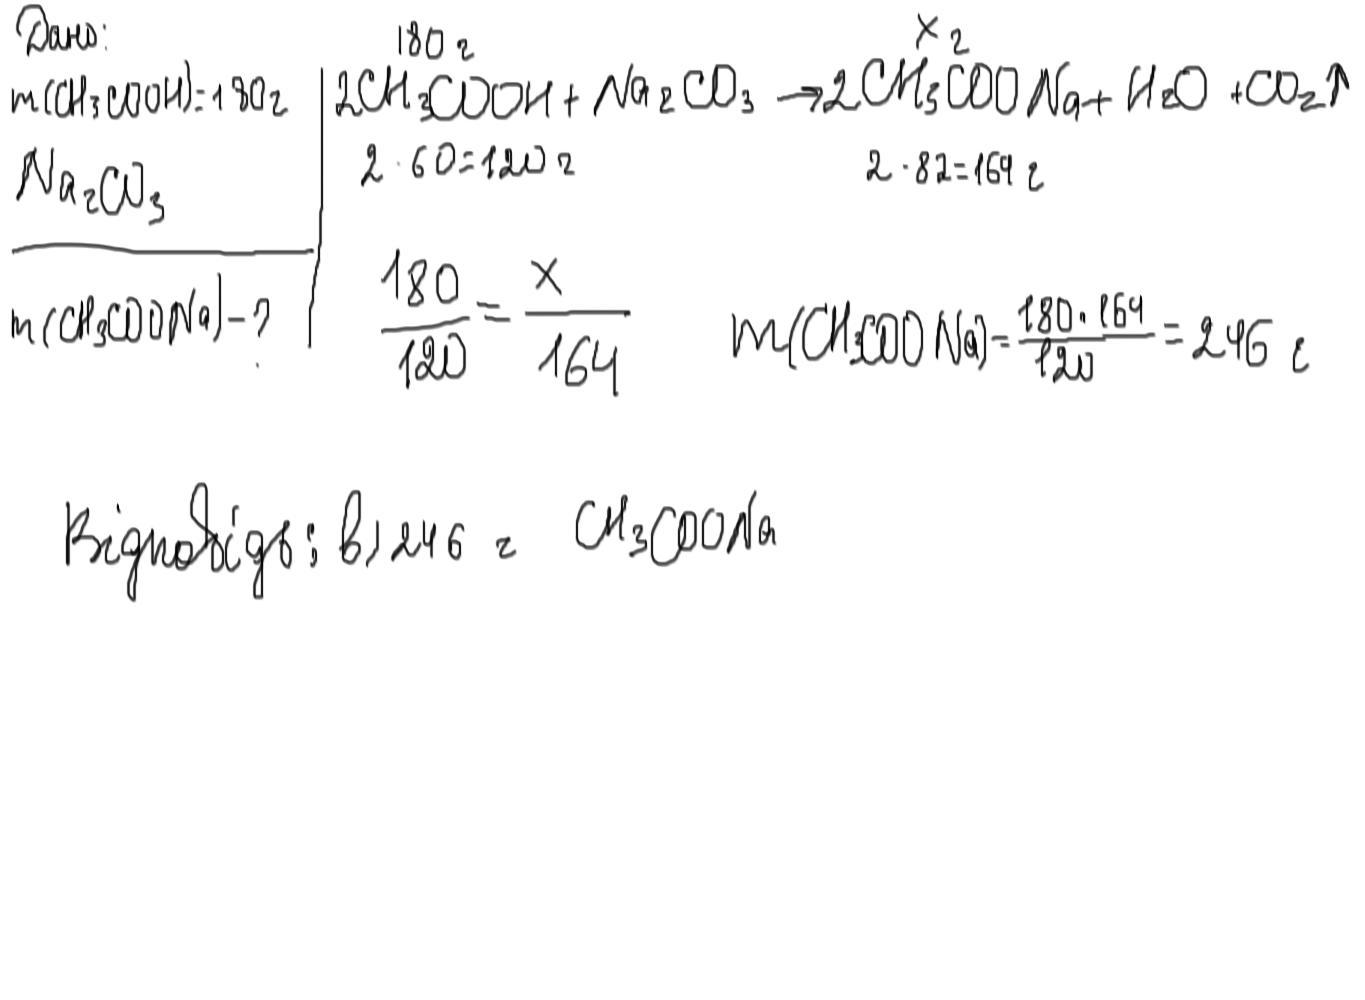 Дано:
m(CH₃COOH)=180г
Na₂CO₃
m(CH₃COONa)-?
180г xг
2CH₃COOH + Na₂CO₃ → 2CH₃COONa + H₂O + CO₂↑
2·60=120г 2·82=164г
180/120 = x/164
m(CH₃COONa)= 180·164/120 = 246 г
Відповідь: в) 246 г CH₃COONa